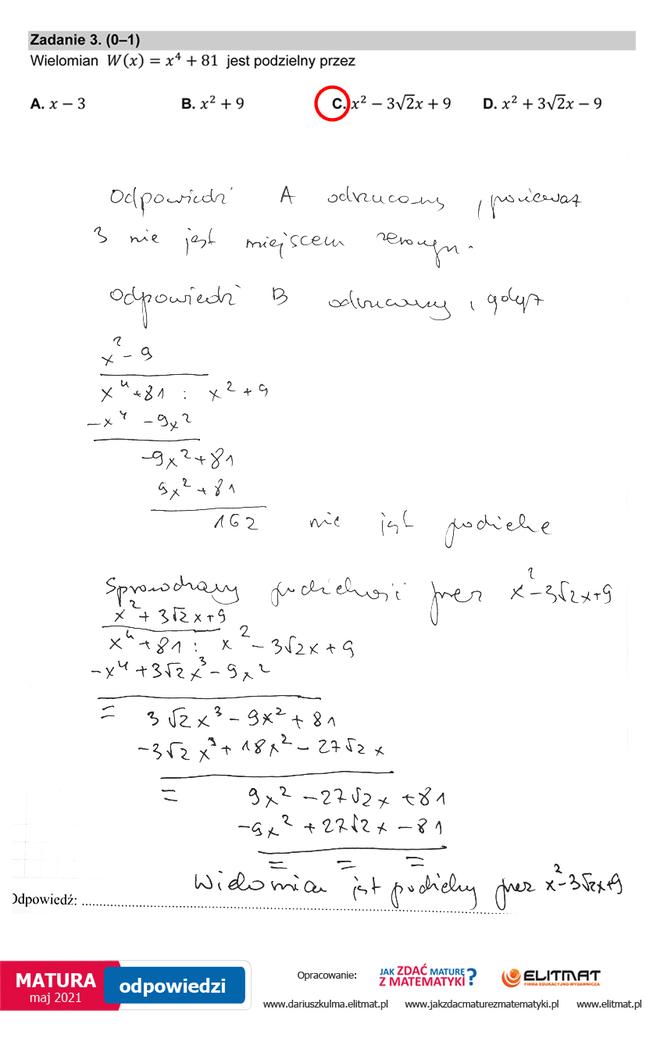 Zadanie 3. (0–1)
Wielomian W(x) = x⁴ + 81 jest podzielny przez
A. x − 3 B. x² + 9 C. x² − 3√2x + 9 D. x² + 3√2x − 9
Odpowiedź A odrzucamy, ponieważ
3 nie jest miejscem zerowym.
Odpowiedź B odrzucamy, gdyż
x² - 9
x⁴ + 81 : x² + 9
-x⁴ - 9x²
-9x² + 81
9x² + 81
162 nie jest podzielne
Sprawdzamy podzielność przez x² - 3√2x + 9
x² + 3√2x + 9
x⁴ + 81 : x² - 3√2x + 9
-x⁴ + 3√2x³ - 9x²
= 3√2x³ - 9x² + 81
-3√2x³ + 18x² - 27√2x
= 9x² - 27√2x + 81
-9x² + 27√2x - 81
= = =
Wielomian jest podzielny przez x² - 3√2x + 9
Odpowiedź: ........................................
MATURA
maj 2021
odpowiedzi
Opracowanie:
JAK ZDAĆ MATURĘ
Z MATEMATYKI?
ELITMAT
FIRMA EDUKACYJNO-WYDAWNICZA
www.dariuszkulma.elitmat.pl www.jakzdacmaturezmatematyki.pl www.elitmat.pl